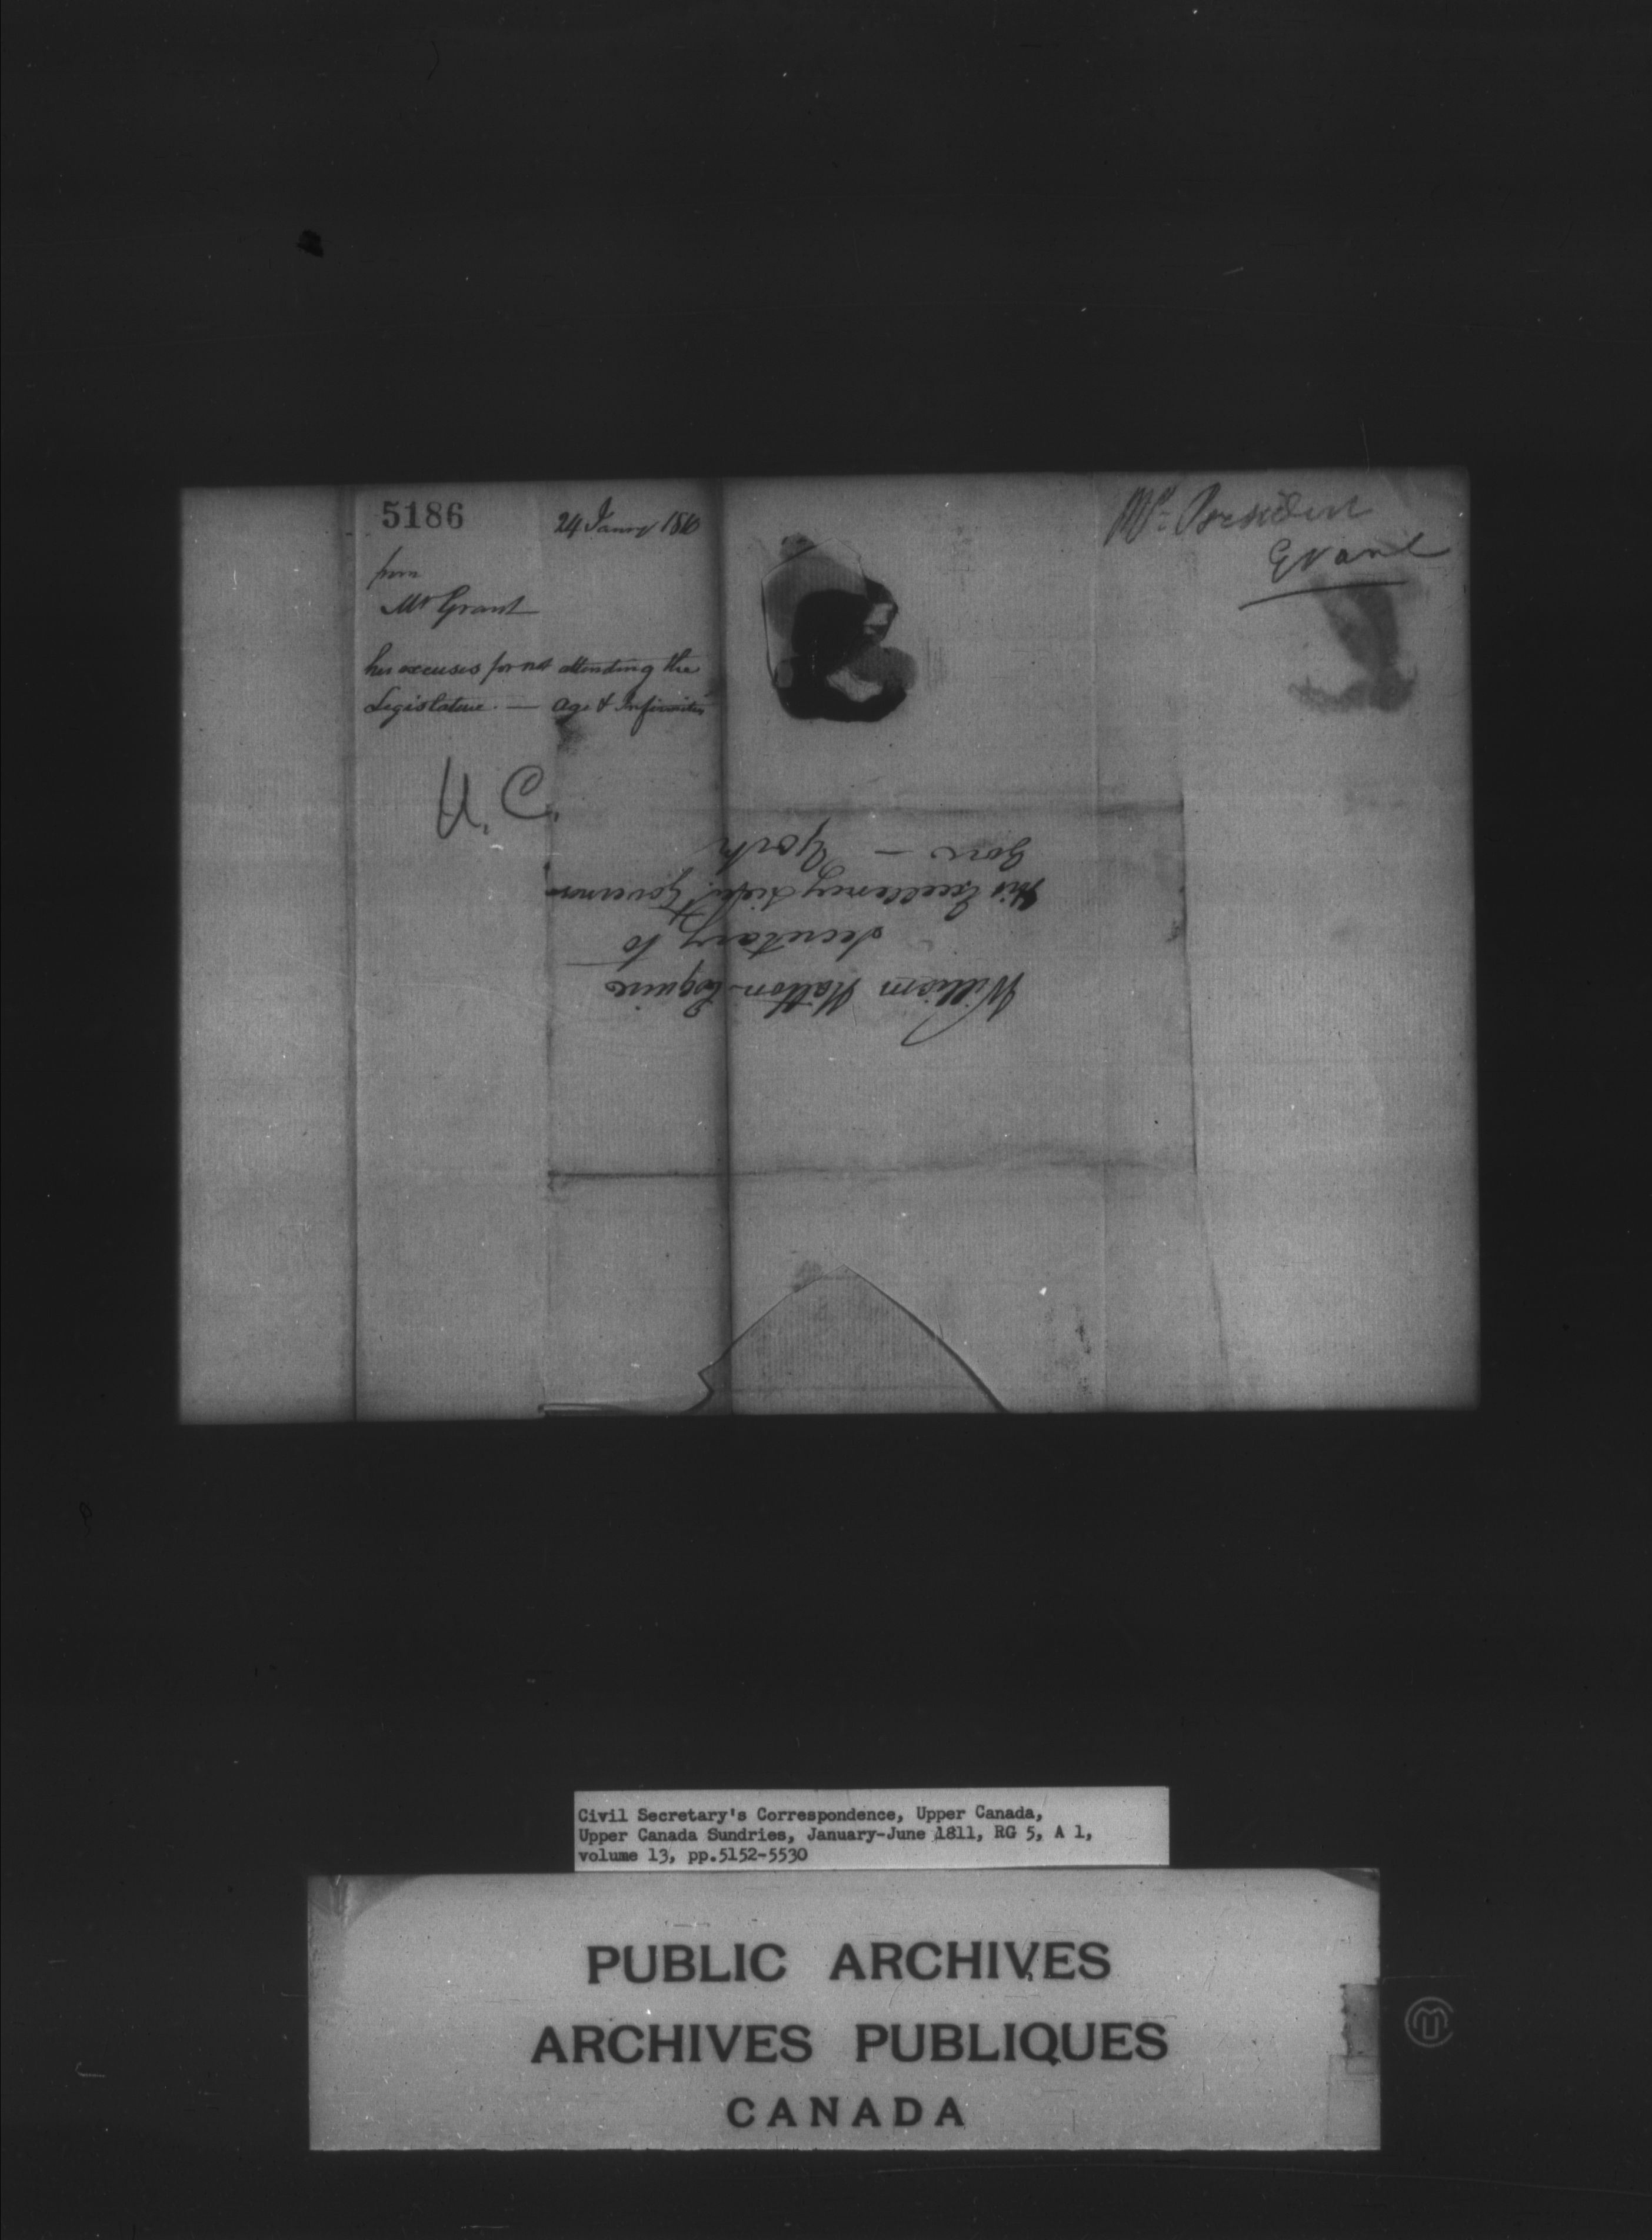 5186
24 Janry 1810
from
Mr Grant
his excuses for not attending the
Legislature. — age & Infirmities
U. C.
Mr. President
Grant
William Halton Esquire
Secretary to
His Excellency Lieut. Governor
Gore — York
Civil Secretary's Correspondence, Upper Canada,
Upper Canada Sundries, January-June 1811, RG 5, A 1,
volume 13, pp.5152-5530
PUBLIC ARCHIVES
ARCHIVES PUBLIQUES
CANADA